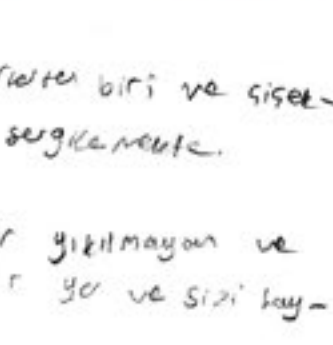 biri ve çiçek-
sergilemekte.
yıkılmayan ve
ve sizi hay-